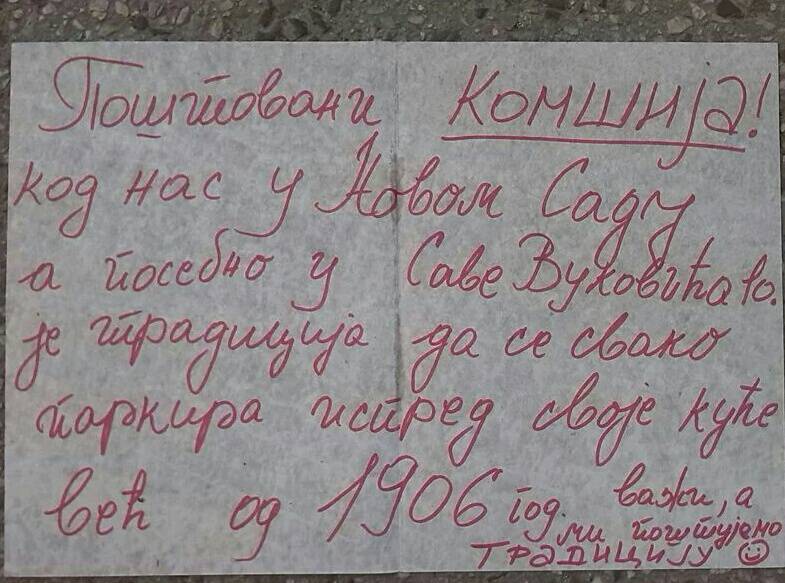 Поштовани КОМШИЈА!
код нас у Новом Саду
а посебно у Саве Вуковића 10.
је традиција да се свако
паркира испред своје куће
већ од 1906 год. важи, а
ми поштујемо
ТРАДИЦИЈУ ☺